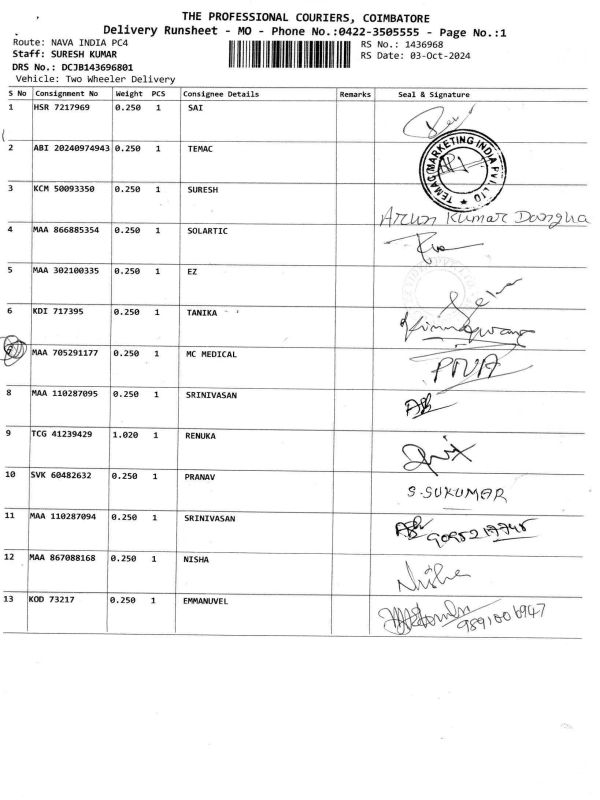 THE PROFESSIONAL COURIERS, COIMBATORE
Delivery Runsheet - MO - Phone No.:0422-3505555 - Page No.:1
Route: NAVA INDIA PC4 RS No.: 1436968
Staff: SURESH KUMAR RS Date: 03-Oct-2024
DRS No.: DCJB143696801
Vehicle: Two Wheeler Delivery
S No Consignment No Weight PCS Consignee Details Remarks Seal & Signature
1 HSR 7217969 0.250 1 SAI
2 ABI 20240974943 0.250 1 TEMAC
TEMAG MARKETING INDIA PVT LTD
3 KCM 50093350 0.250 1 SURESH Arun Kumar
4 MAA 866885354 0.250 1 SOLARTIC
5 MAA 302100335 0.250 1 EZ
6 KDI 717395 0.250 1 TANIKA
7 MAA 705291177 0.250 1 MC MEDICAL
8 MAA 110287095 0.250 1 SRINIVASAN
9 TCG 41239429 1.020 1 RENUKA
10 SVK 60482632 0.250 1 PRANAV S.SUKUMAR
11 MAA 110287094 0.250 1 SRINIVASAN
12 MAA 867088168 0.250 1 NISHA Nisha
13 KOD 73217 0.250 1 EMMANUVEL 9891006947